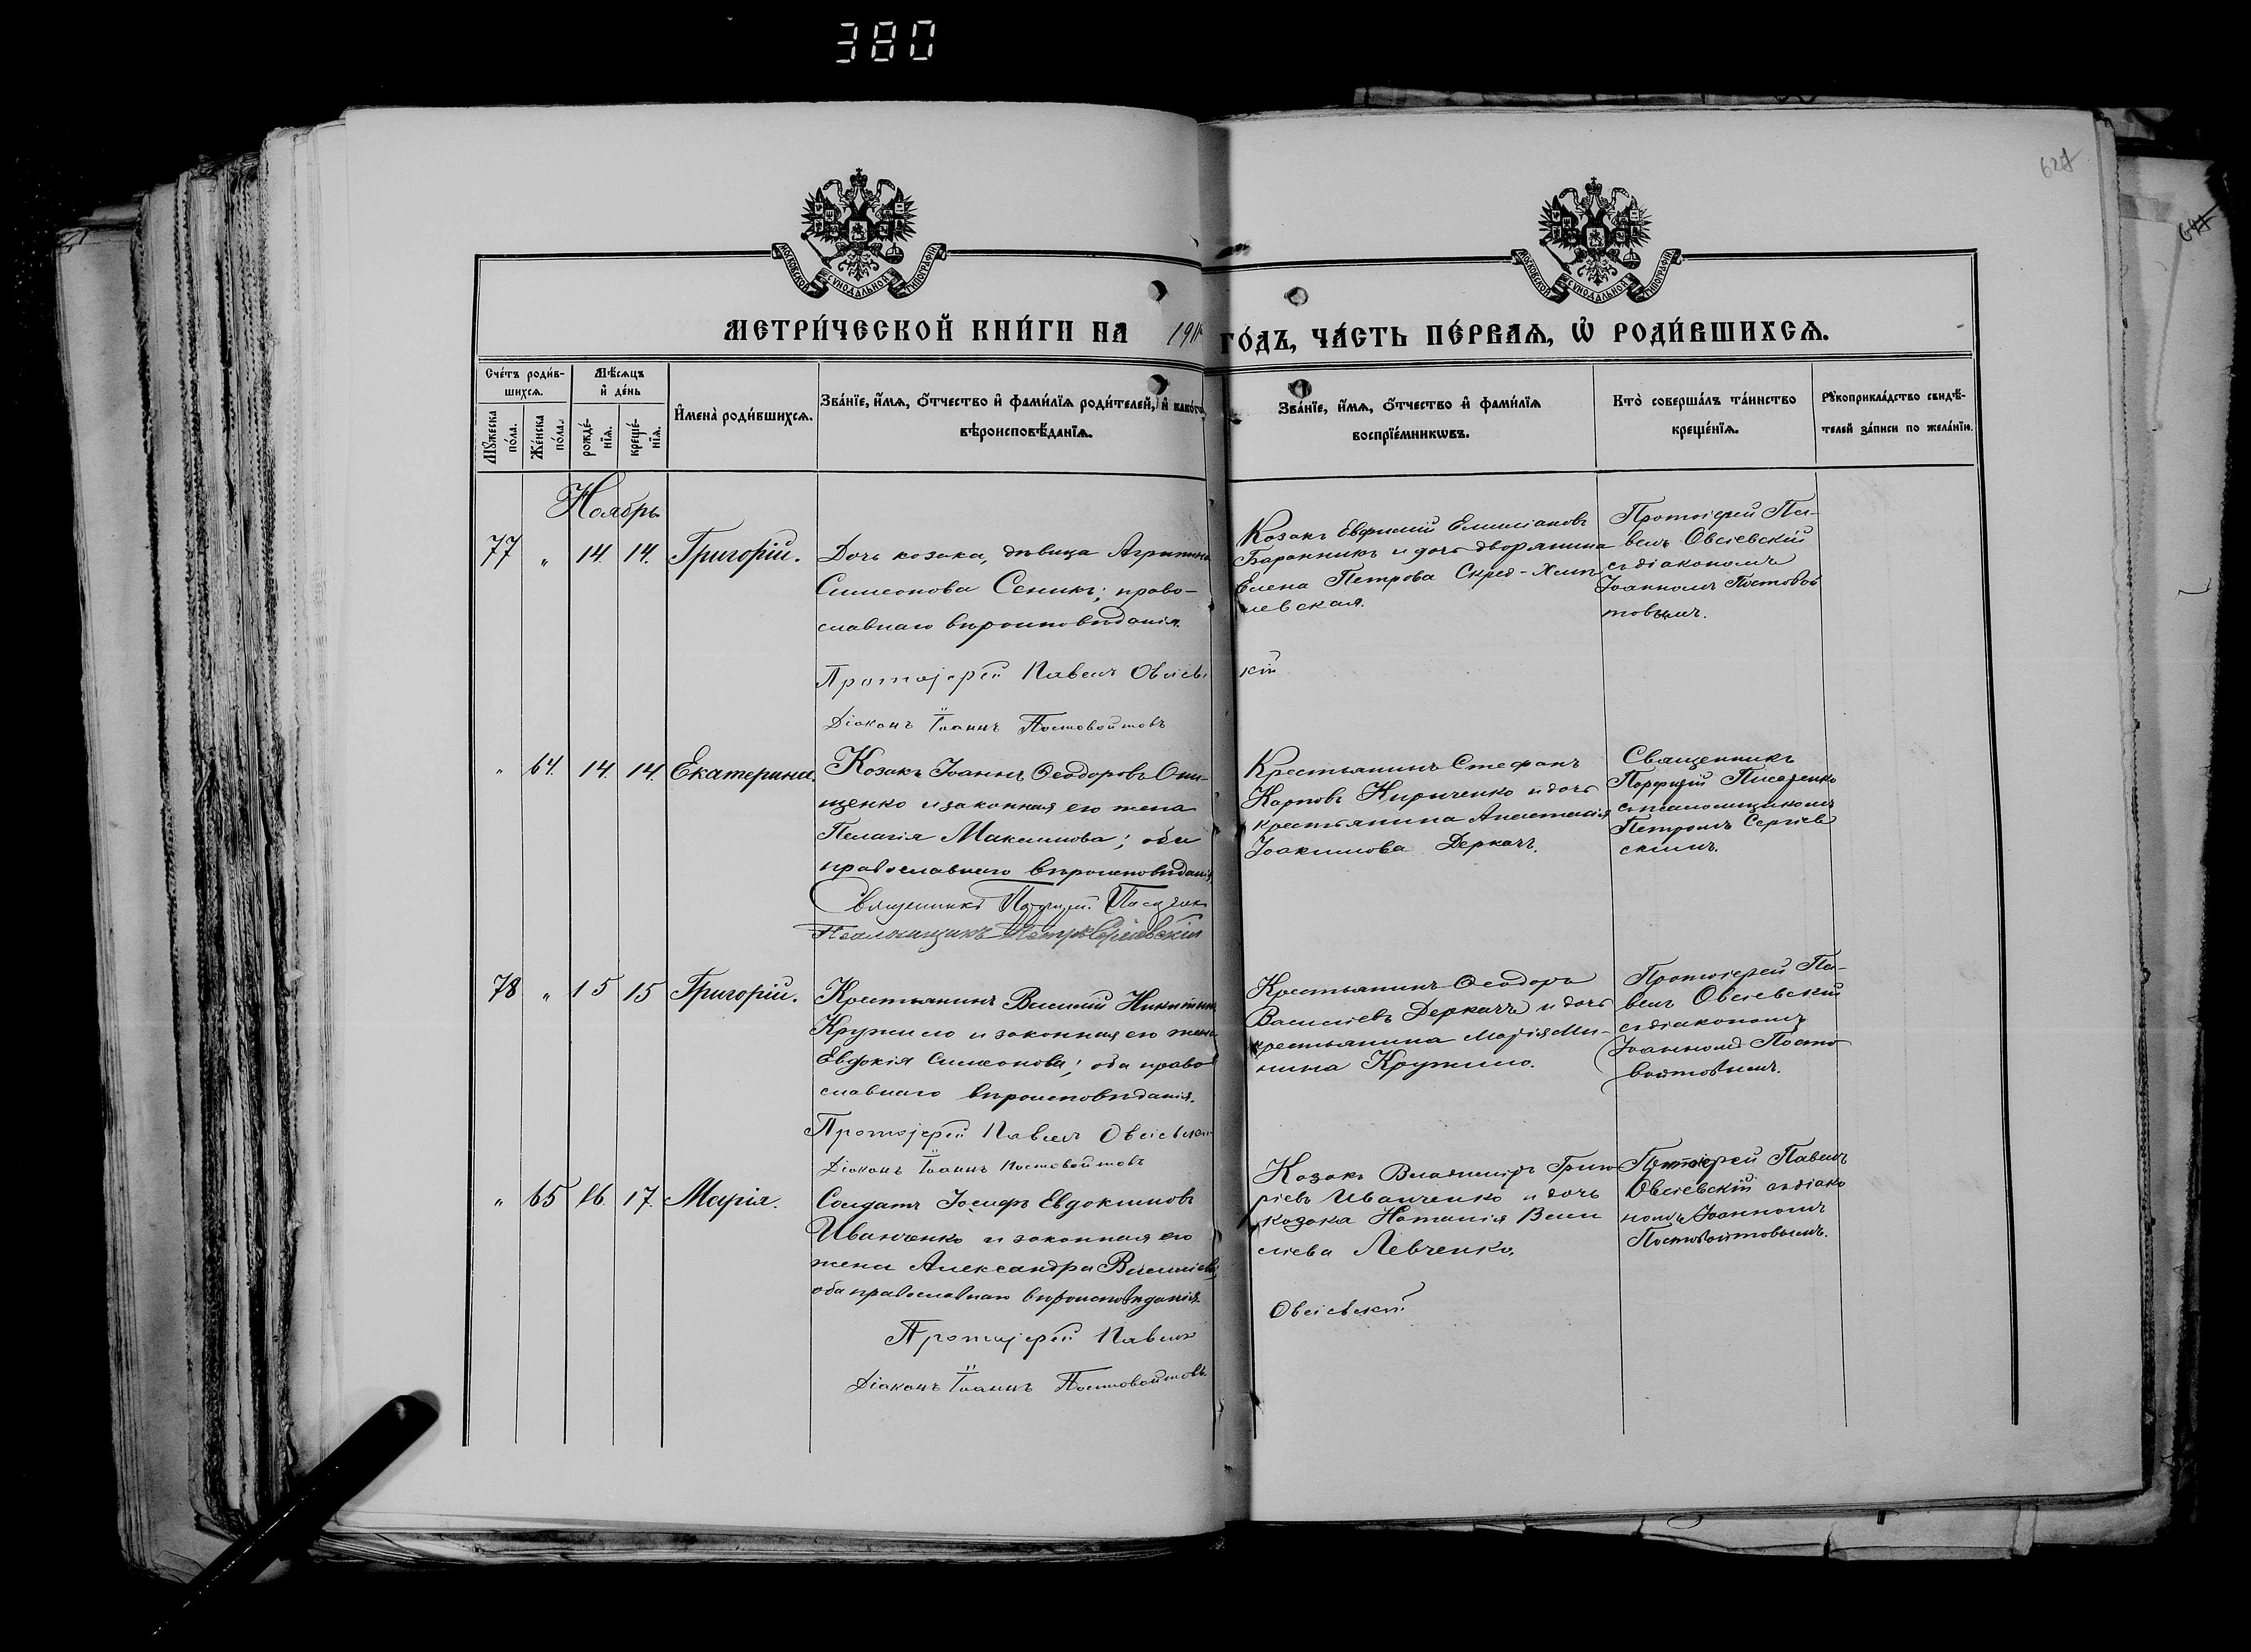 380
627
МОСКОВСКОЙ СѴНОДАЛЬНОЙ ТИПОГРАФІИ
МОСКОВСКОЙ СѴНОДАЛЬНОЙ ТИПОГРАФІИ
МЕТРИ́ЧЕСКОЙ КНИ́ГИ НА 1911 ГО́ДЪ, ЧА́СТЬ ПЕ́РВАЯ, Ѡ҆ РОДИ́ВШИХСѦ.
Сче́тъ роди́в-
шихсѧ.
Мꙋжеска по́ла.
Же́нска по́ла.
Мѣ́сѧцъ
и҆ де́нь
рожде́-
нїѧ.
креще́-
нїѧ.
И҆мена̀ роди́вшихсѧ.
Зва́нїе, и҆́мѧ, ѻ҆́тчество и҆ фами́лїѧ роди́телей, и҆ како́гѡ
вѣроисповѣ́данїѧ.
Зва́нїе, и҆́мѧ, ѻ҆́тчество и҆ фами́лїѧ
воспрїе́мникѡвъ.
Кто̀ соверша́лъ та́инство
креще́нїѧ.
Рꙋкоприкла́дство свидѣ́-
телей за́писи по жела́нїю.
Ноябрь
77 " 14. 14. Григорій.
Дочь козака, дѣвица Агрипина
Симеонова Сеникъ; право-
славнаго вѣроисповѣданія.
Протоіерей Павелъ Овсіевскій
Діаконъ Іоаннъ Постовойтовъ
Козакъ Евфимій Емиліановъ
Баранникъ и дочь дворянина
Елена Петрова Скред-
левская.
Протоіерей Па-
велъ Овсіевскій
съ діакономъ
Іоанномъ Постовой
товымъ.
" 64. 14. 14. Екатерина.
Козакъ Іоаннъ Ѳеодоровъ Они-
щенко и законная его жена
Пелагія Максимова; оба
православнаго вѣроисповѣданія.
Священникъ Порфирій Писаренко
Псаломщикъ Петръ Сергіевскій
Крестьянинъ Стефанъ
Карповъ Кириченко и дочь
крестьянина Анастасія
Іоакимова Деркачъ.
Священникъ
Порфирій Писаренко
съ псаломщикомъ
Петромъ Сергіев
скимъ.
78 " 15 15 Григорій.
Крестьянинъ Василій Никитинъ
Кружило и законная его жена
Евдокія Симеонова; оба право
славнаго вѣроисповѣданія.
Протоіерей Павелъ Овсіевскій
Діаконъ Іоаннъ Постовойтовъ
Крестьянинъ Ѳеодоръ
Василіевъ Деркачъ и дочь
крестьянина Марія Ми-
нина Кружило.
Протоіерей Па-
велъ Овсіевскій
съ діакономъ
Іоанномъ Посто
войтовымъ.
" 65 16. 17. Марія.
Солдатъ Іосифъ Евдокимовъ
Иванченко и законная его
жена Александра Василіева;
оба православнаго вѣроисповѣданія.
Протоіерей Павелъ Овсіевскій
Діаконъ Іоаннъ Постовойтовъ
Козакъ Владиміръ Григо
ріевъ Иванченко и дочь
козака Наталія Васи
ліева Левченко.
Протоіерей Павелъ
Овсіевскій съ діако
номъ Іоанномъ
Постовойтовымъ.